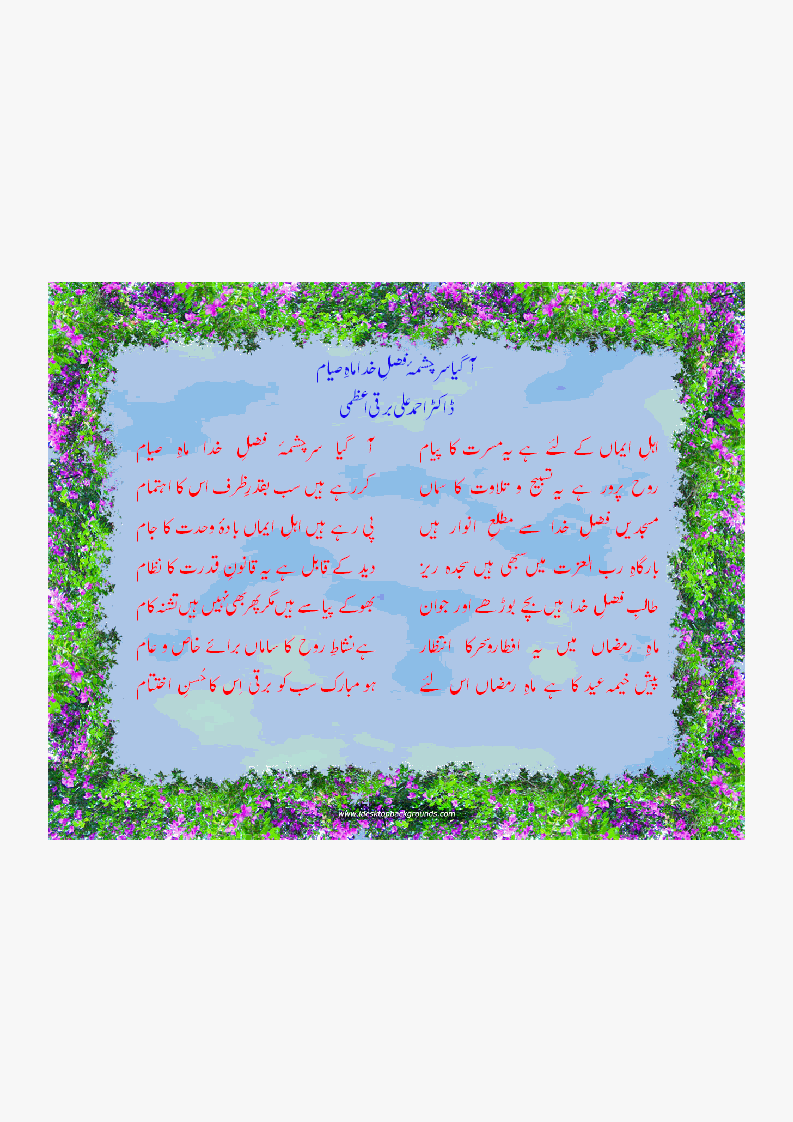 آ گیا سرچشمۂ فضلِ خدا ماہِ صیام
ڈاکٹر احمد علی برقی اعظمی
اہل ایماں کے لئے ہے یہ مسرت کا پیام آ گیا سرچشمۂ فضل خدا ماہِ صیام
روح پرور ہے یہ تسبیح و تلاوت کا سماں کررہے ہیں سب بقدرِ ظرف اس کا اہتمام
مسجدیں فضلِ خدا سے مطلعِ انوار ہیں پی رہے ہیں اہلِ ایماں بادۂ وحدت کا جام
بارگاہِ رب العزت میں سبھی ہیں سجدہ ریز دید کے قابل ہے یہ قانونِ قدرت کا نظام
طالبِ فضلِ خدا ہیں بچے بوڑھے اور جوان بھوکے پیاسے ہیں مگر پھر بھی نہیں ہیں تشنہ کام
ماہِ رمضاں میں یہ افطار و سحر کا انتظار ہے نشاطِ روح کا ساماں برائے خاص و عام
پیش خیمہ عید کا ہے ماہِ رمضاں اس لئے ہو مبارک سب کو برقی اس کا حُسنِ اختتام
www.idesktopbackgrounds.com